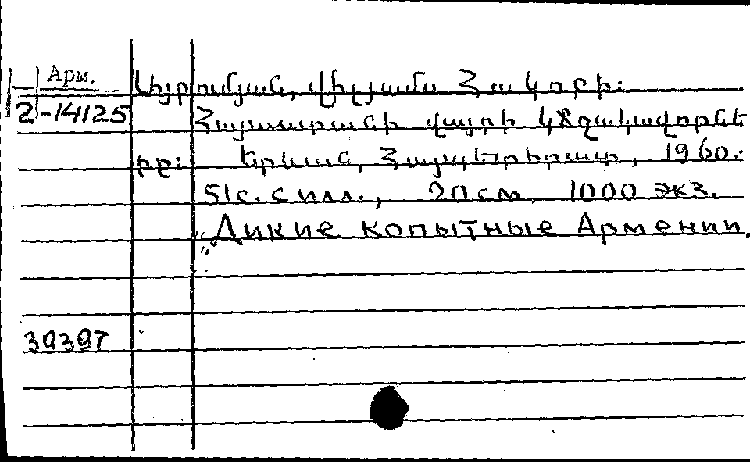 Арм.
Այրումյան, Վիլյամս Հակոբի:
2-14125
Հայաստանի վայրի կճղակավորնե
րը: Երևան, Հայպետհրատ, 1960.
51с. с илл., 20см 1000 экз.
"Дикие копытные Армении.
39397